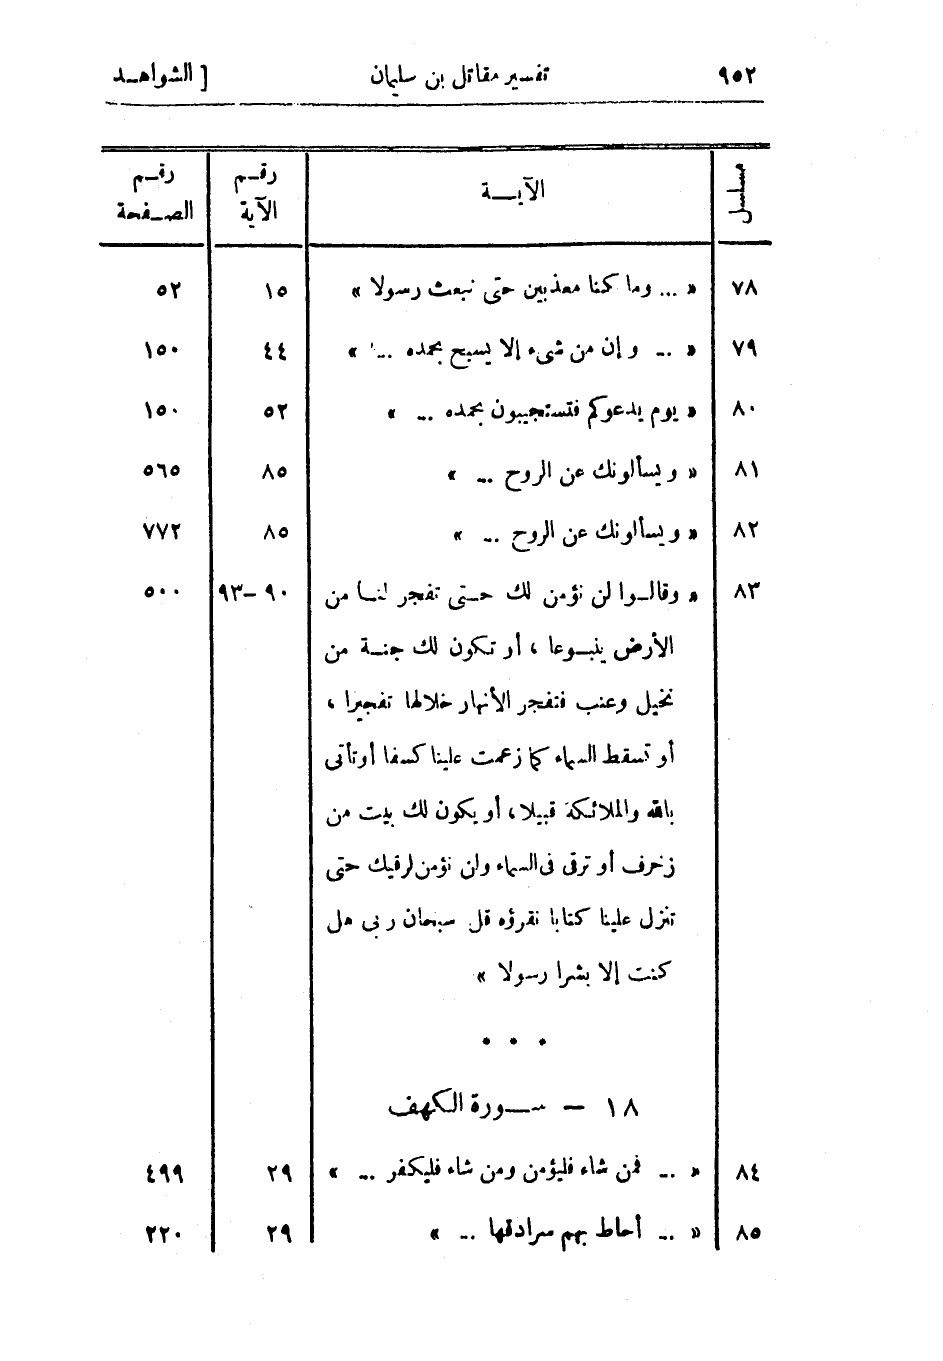 ٩٥٢ تفسير مقاتل بن سليمان [ الشواهد
مسلسل الآيــة رقم الآية رقم الصفحة
٧٨ « ... وما كنا معذبين حتى نبعث رسولا » ١٥ ٥٢
٧٩ « ... وإن من شىء إلا يسبح بحمده ... » ٤٤ ١٥٠
٨٠ « يوم يدعوكم فتستجيبون بحمده ... » ٥٢ ١٥٠
٨١ « ويسألونك عن الروح ... » ٨٥ ٥٦٥
٨٢ « ويسألونك عن الروح ... » ٨٥ ٧٧٢
٨٣ « وقالـوا لن نؤمن لك حـتى تفجر لنـا من ٩٠-٩٣ ٥٠٠
الأرض ينبـوعا ، أو تكون لك جنـة من
نخيل وعنب فتفجر الأنهار خلالها تفجيرا ،
أو تسقط السماء كما زعمت علينا كسفا أو تأتى
بالله والملائكة قبيلا، أو يكون لك بيت من
زخرف أو ترقى فى السماء ولن نؤمن لرقيك حتى
تنزل علينا كتابا نقرؤه قل سبحان ربى هل
كنت إلا بشرا رسولا »
• • •
١٨ – ســورة الكهف
٨٤ « ... فمن شاء فليؤمن ومن شاء فليكفر ... » ٢٩ ٤٩٩
٨٥ « ... أحاط بهم سرادقها ... » ٢٩ ٢٢٠